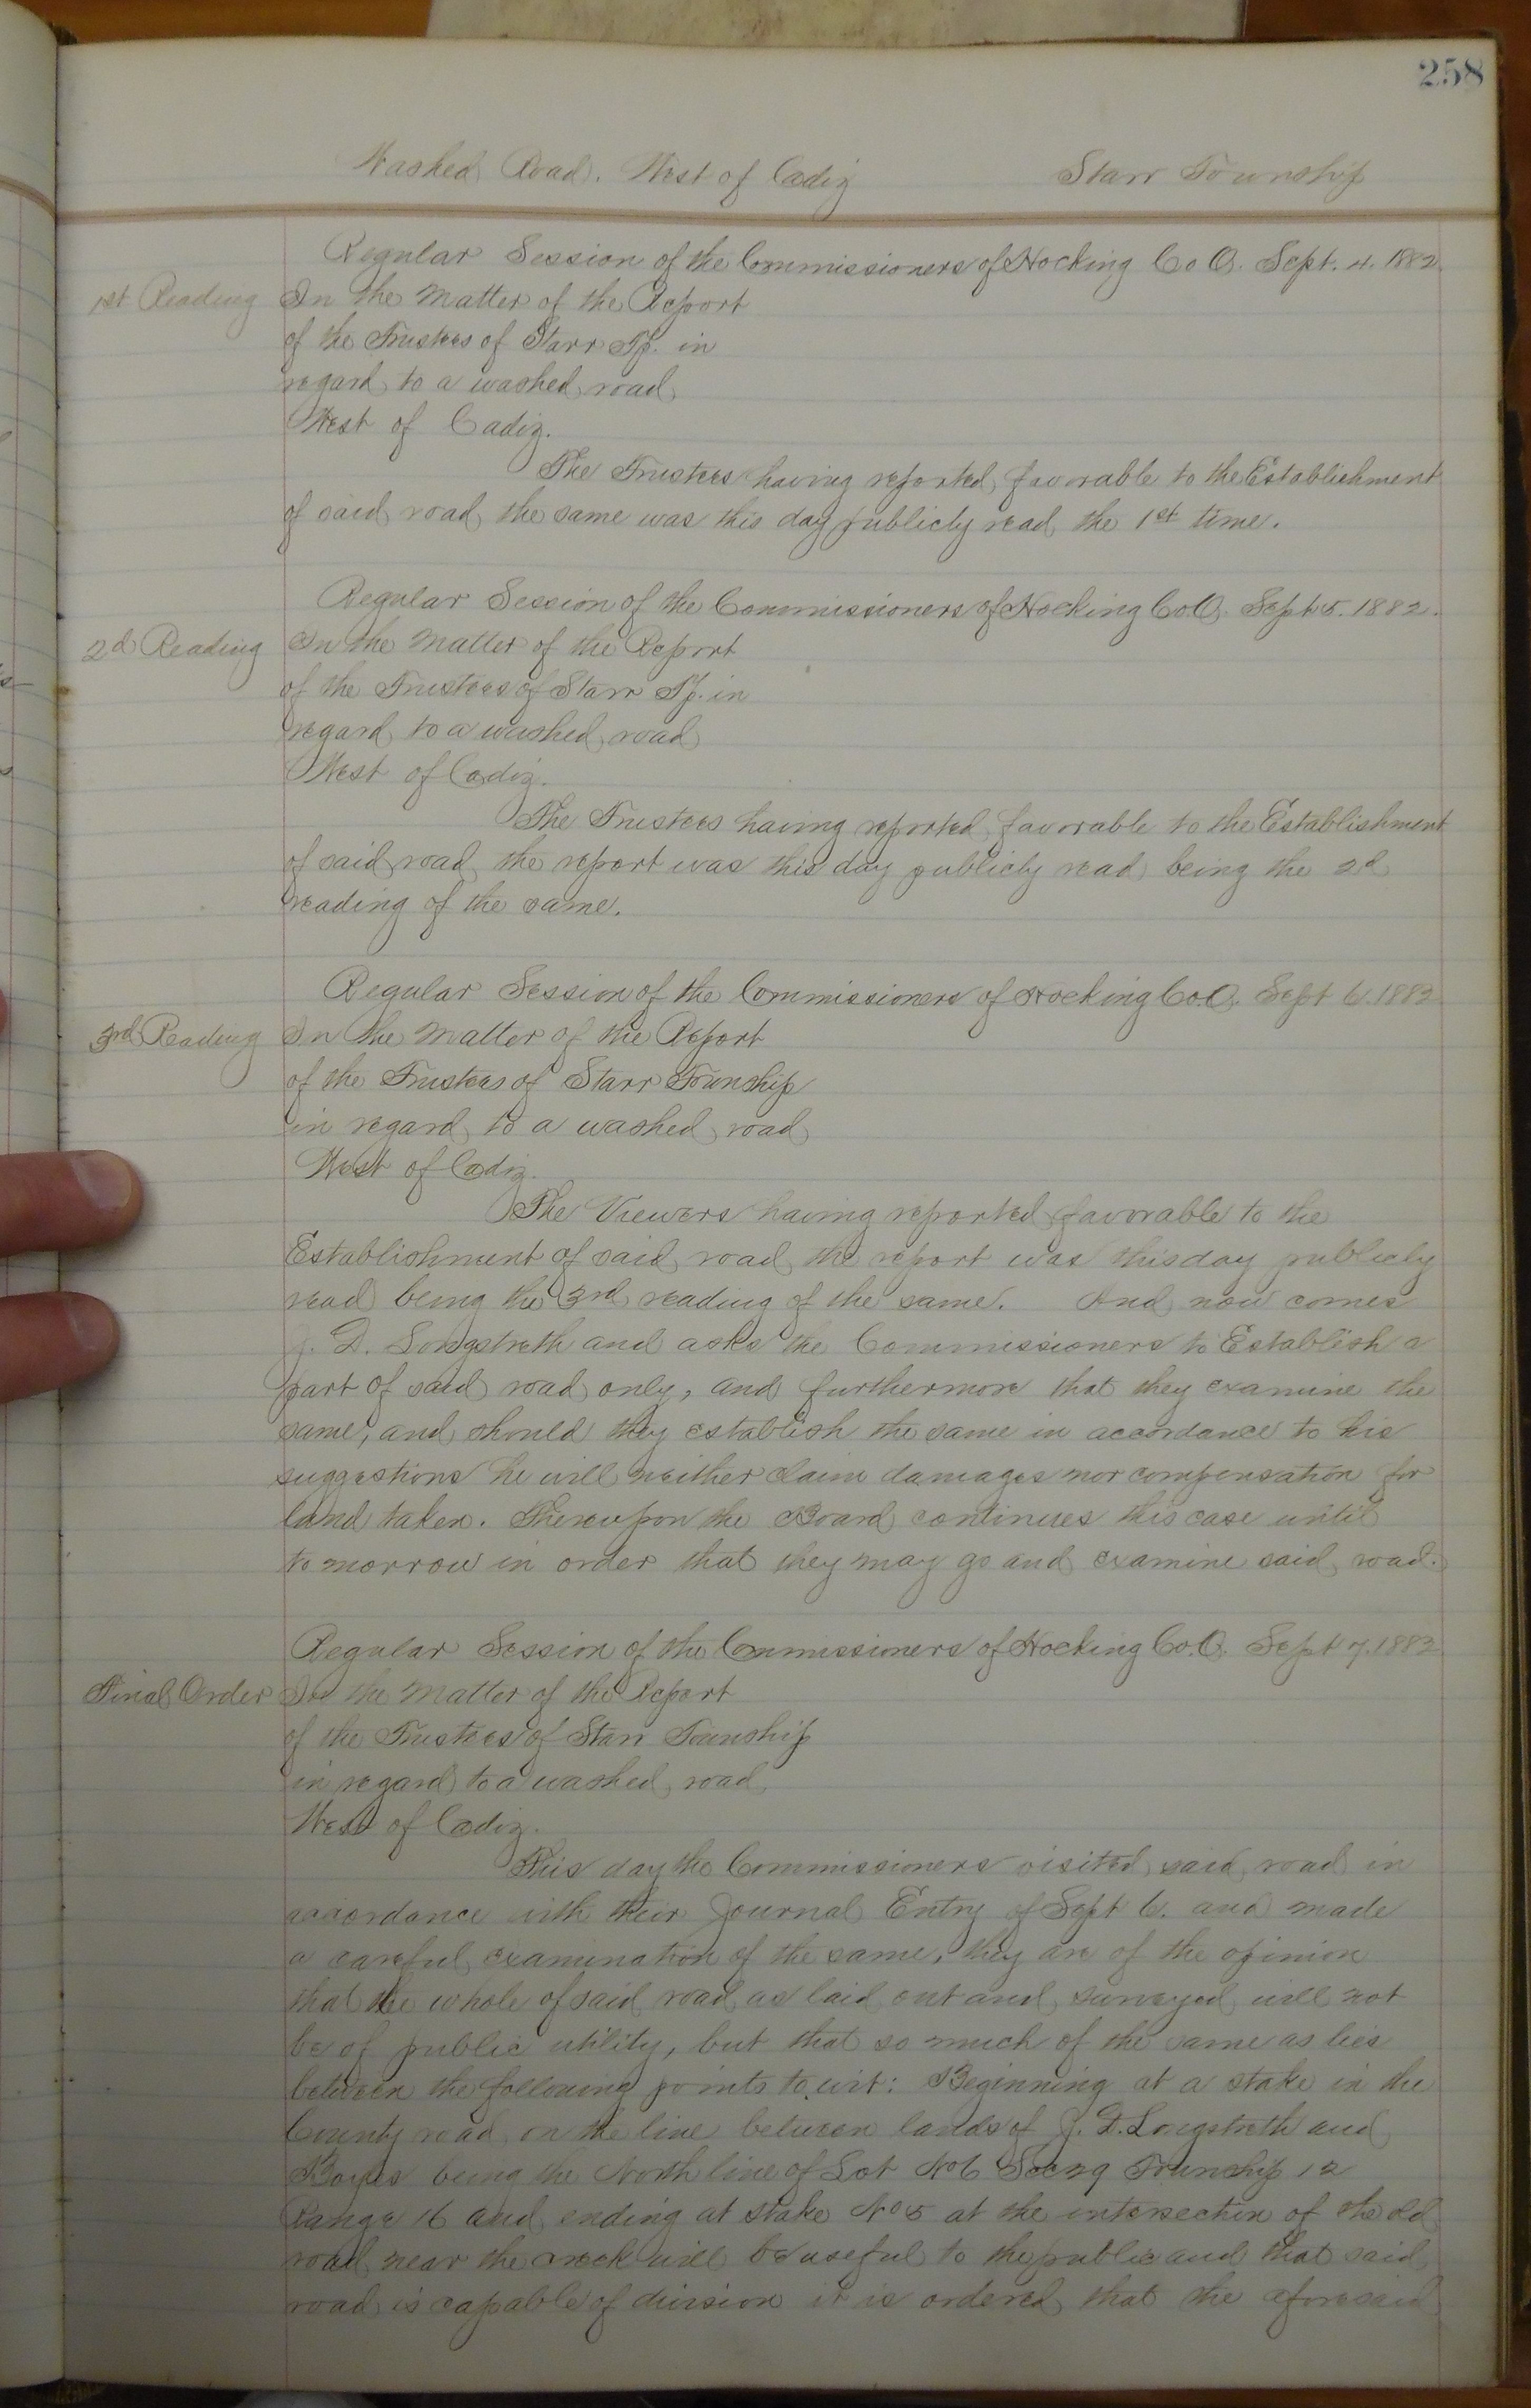 258
Washed Road. West of Cadiz Starr Township
Regular Session of the Commissioners of Hocking Co O. Sept. 4. 1882.
1st Reading In the Matter of the Report
of the Trustees of Starr Tp. in
regard to a washed road
West of Cadiz.
The Trustees having reported favorable to the Establishment
of said road the same was this day publicly read the 1st time.
Regular Session of the Commissioners of Hocking Co. O. Sept 5. 1882.
2d Reading In the Matter of the Report
of the Trustees of Starr Tp. in
regard to a washed road
West of Cadiz.
The Trustees having reported favorable to the Establishment
of said road the report was this day publicly read being the 2d
reading of the same.
Regular Session of the Commissioners of Hocking Co. O. Sept 6. 1882
3rd Reading In the Matter of the Report
of the Trustees of Starr Township
in regard to a washed road
West of Cadiz.
The Viewers having reported favorable to the
Establishment of said road the report was this day publicly
read being the 3rd reading of the same. And now comes
J. D. Longstreth and asks the Commissioners to Establish a
part of said road only, and furthermore that they examine the
same, and should they establish the same in accordance to his
suggestions he will neither claim damages nor compensation for
land taken. Thereupon the Board continues this case until
to morrow in order that they may go and examine said road.
Regular Session of the Commissioners of Hocking Co. O. Sept 7. 1882
Final Order In the Matter of the Report
of the Trustees of Starr Township
in regard to a washed road
West of Cadiz.
This day the Commissioners visited said road in
accordance with their Journal Entry of Sept 6. and made
a careful examination of the same, they are of the opinion
that the whole of said road as laid out and surveyed will not
be of public utility, but that so much of the same as lies
between the following points to wit: Beginning at a stake in the
County road on the line between lands of J. D. Longstreth and
being the North line of Lot No 6 Sec 29 Township 12
Range 16 and ending at stake No 5 at the intersection of the old
road near the creek will be useful to the public and that said
road is capable of division it is ordered that the aforesaid